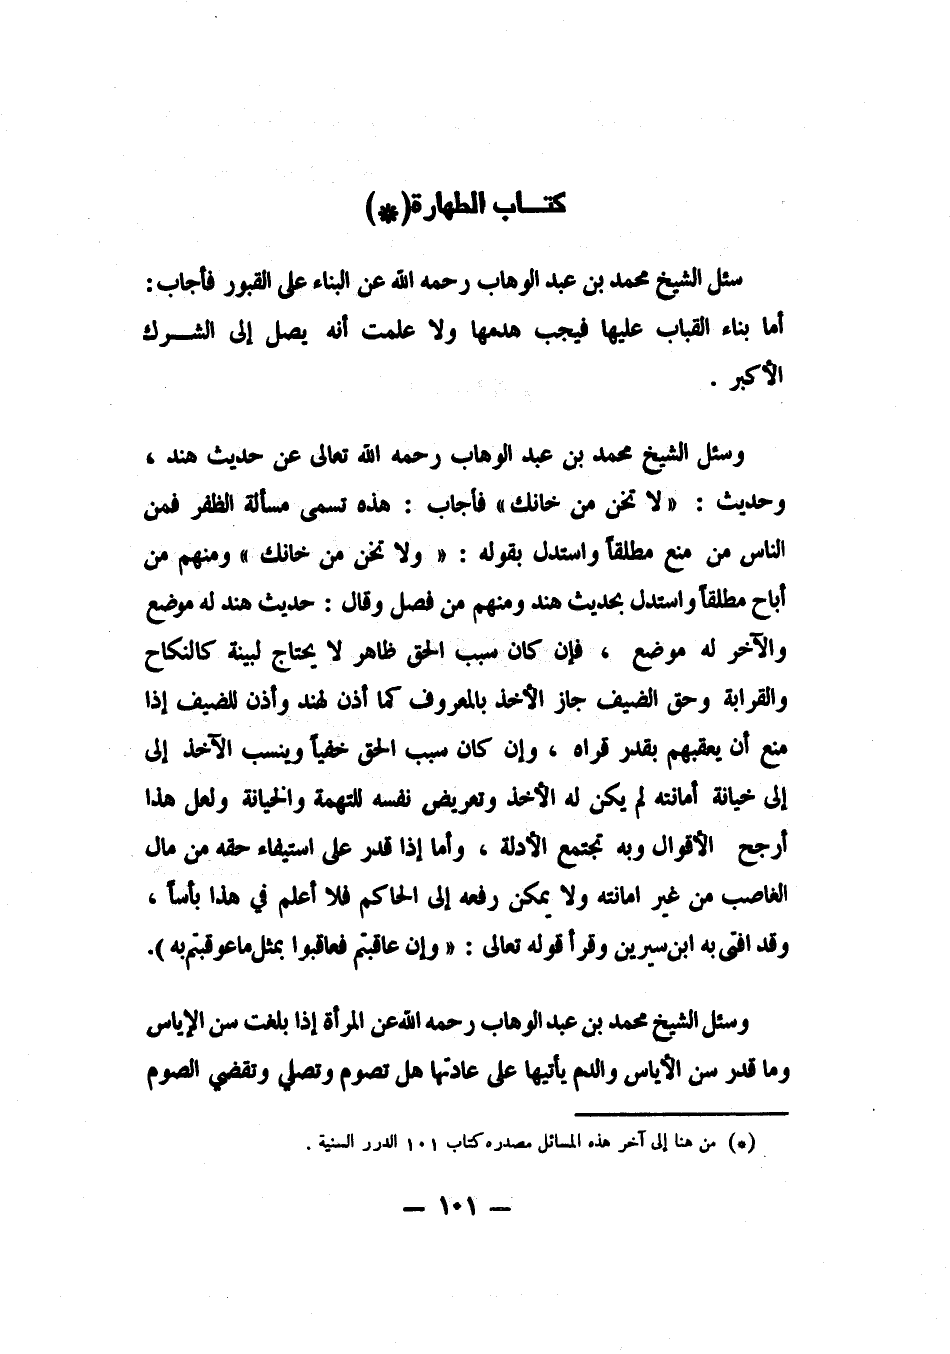 كتـــاب الطهارة(*)
سئل الشيخ محمد بن عبد الوهاب رحمه الله عن البناء على القبور فأجاب:
أما بناء القباب عليها فيجب هدمها ولا علمت أنه يصل إلى الشـــرك
الأكبر .
وسئل الشيخ محمد بن عبد الوهاب رحمه الله تعالى عن حديث هند ،
وحديث : « لا تخن من خانك» فأجاب : هذه تسمى مسألة الظفر فمن
الناس من منع مطلقاً واستدل بقوله : « ولا تخن من خانك » ومنهم من
أباح مطلقاً واستدل بحديث هند ومنهم من فصل وقال : حديث هند له موضع
والآخر له موضع ، فإن كان سبب الحق ظاهر لا يحتاج لبينة كالنكاح
والقرابة وحق الضيف جاز الأخذ بالمعروف كما أذن لهند وأذن للضيف إذا
منع أن يعقبهم بقدر قراه ، وإن كان سبب الحق خفياً وينسب الآخذ إلى
إلى خيانة أمانته لم يكن له الأخذ وتعريض نفسه للتهمة والخيانة ولعل هذا
أرجح الأقوال وبه تجتمع الأدلة ، وأما إذا قدر على استيفاء حقه من مال
الغاصب من غير امانته ولا يمكن رفعه إلى الحاكم فلا أعلم في هذا بأساً ،
وقد افتى به ابن سيرين وقرأ قوله تعالى : « وإن عاقبتم فعاقبوا بمثل ماعوقبتم به ).
وسئل الشيخ محمد بن عبد الوهاب رحمه الله عن المرأة إذا بلغت سن الإياس
وما قدر سن الأياس والدم يأتيها على عادتها هل تصوم وتصلي وتقضي الصوم
(*) من هنا إلى آخر هذه المسائل مصدره كتاب ١٠١ الدرر السنية .
— ١٠١ —